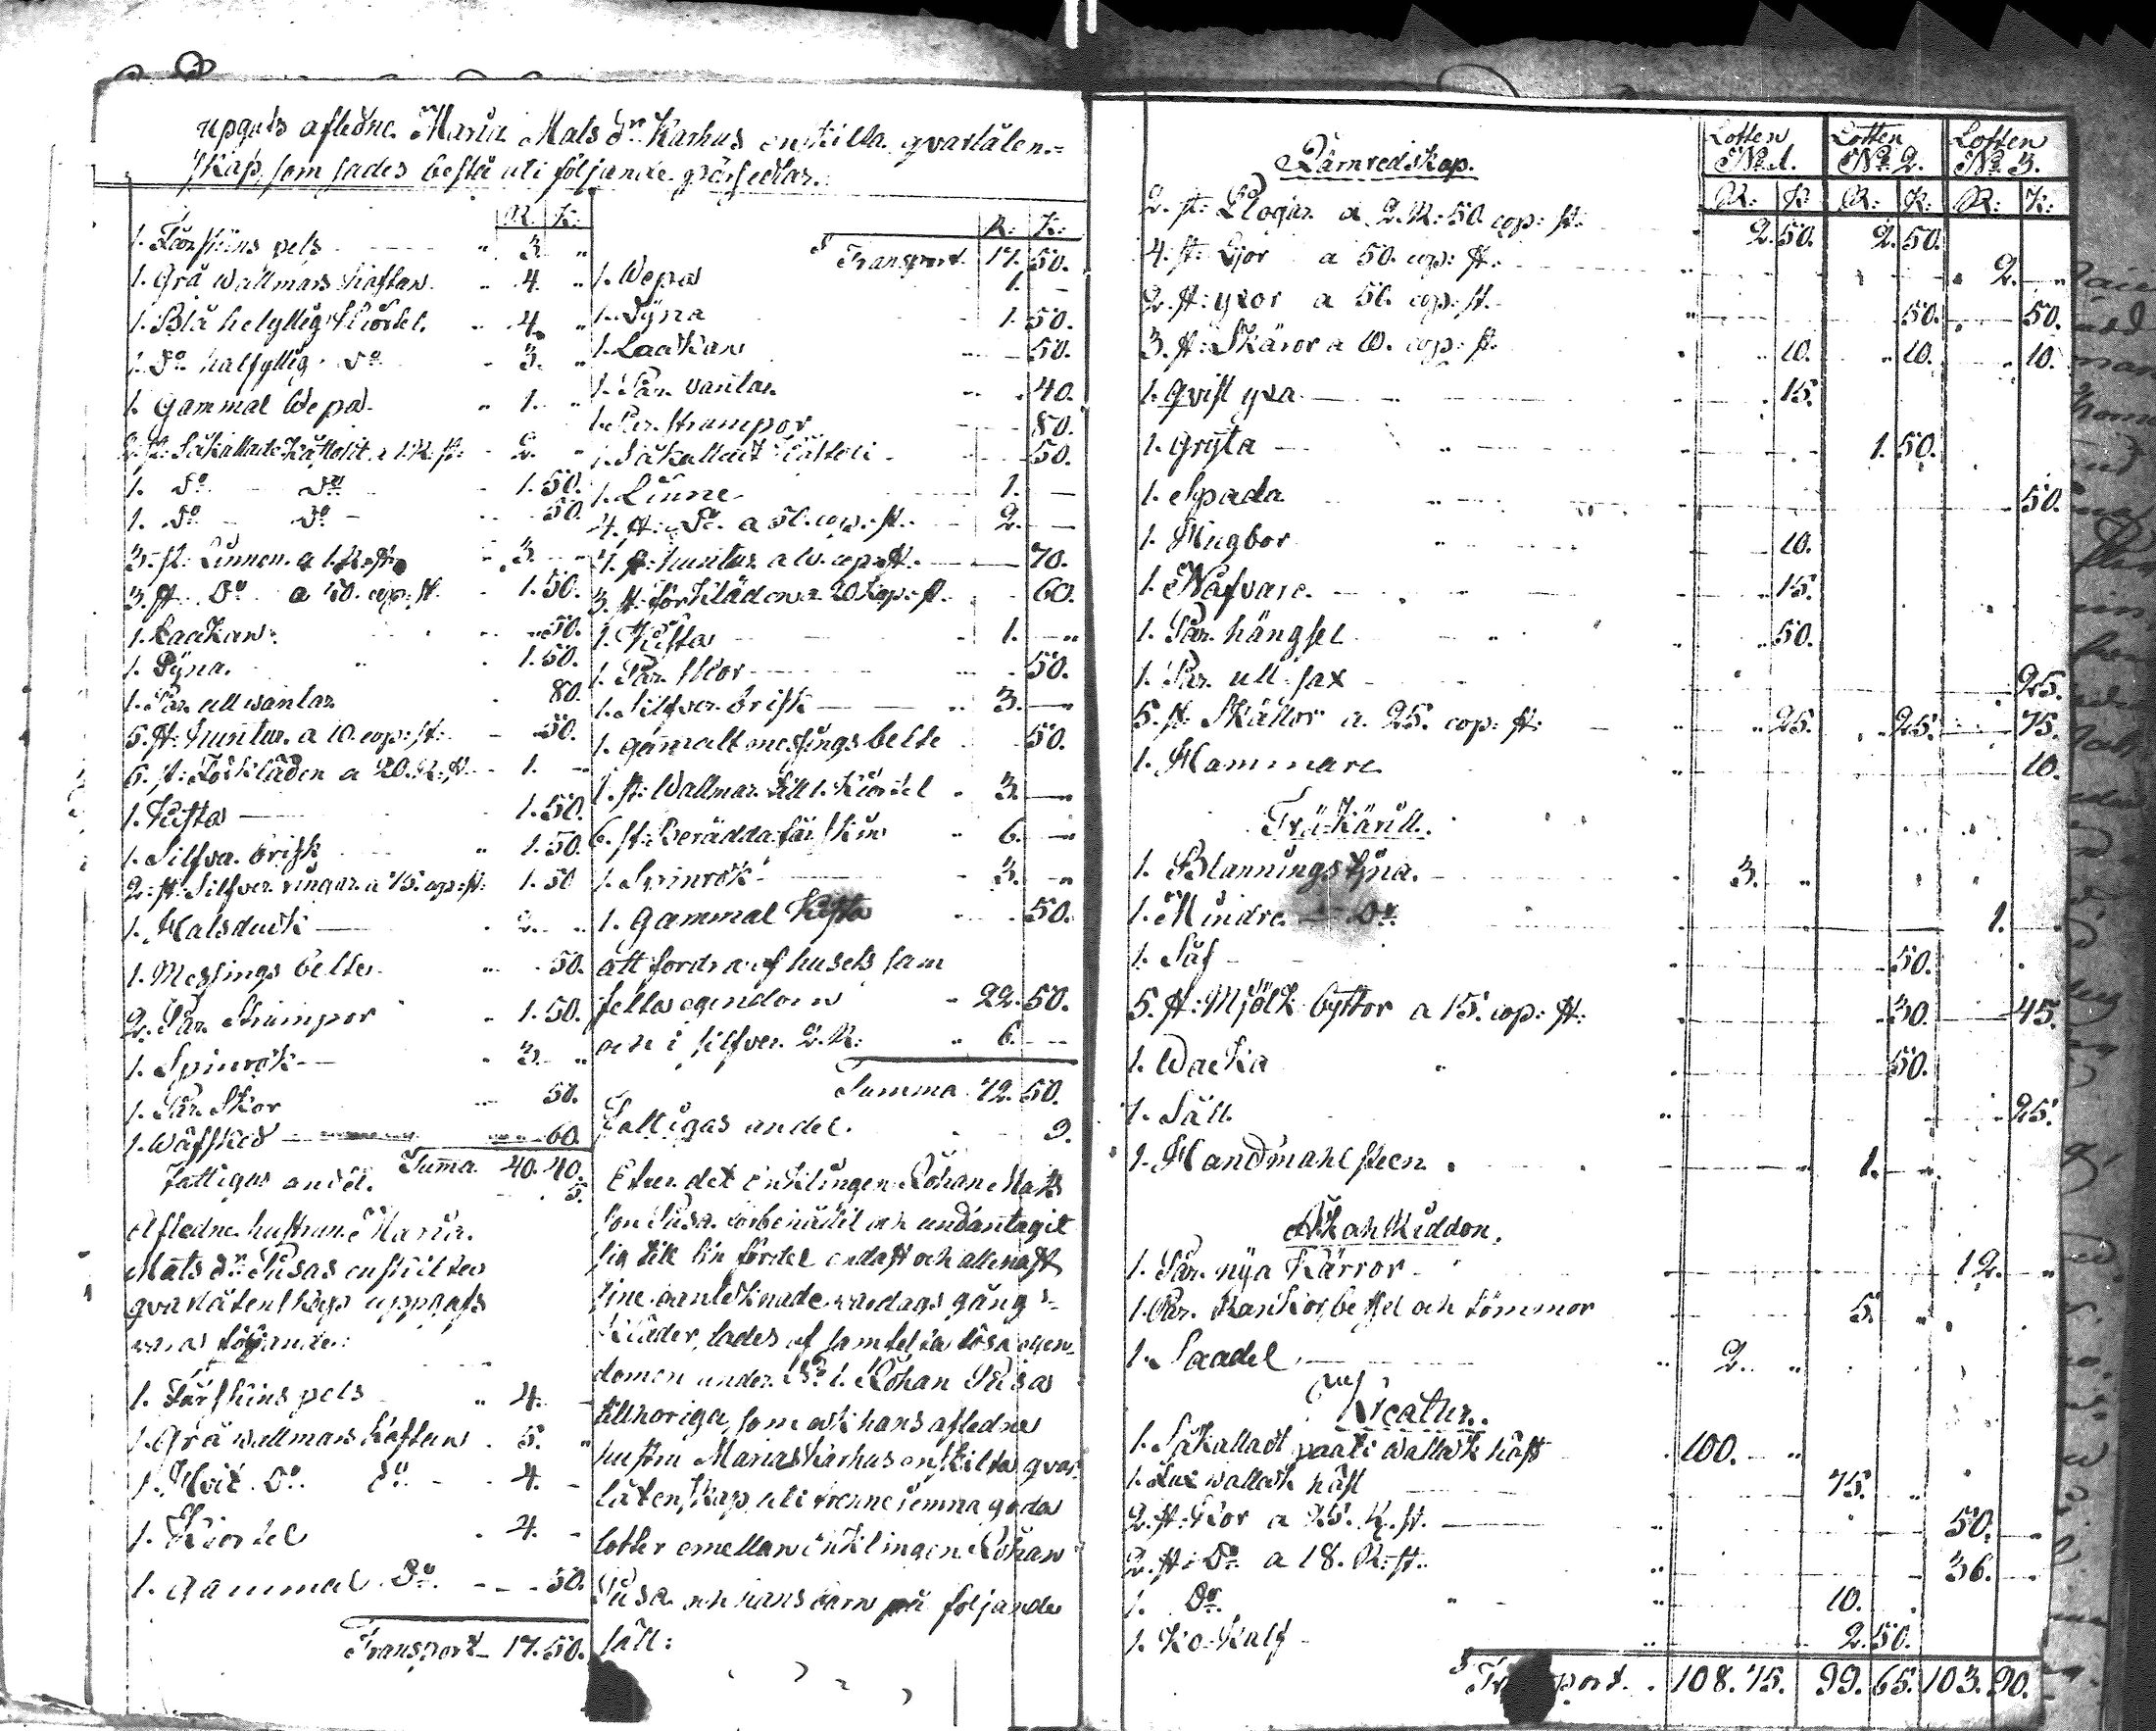 upgafs afledne Maria Mats dr Karhus enskilta qvarlåten-
skap, som sades bestå uti följande persedlar.
R. K:
1. Fårskins pels " 3. "
1. Grå Wallmars Kaftan " 4. "
1. Blå helyllig Kiortel. " 4. "
1. Do halfyllig Do 3. "
1. Gammal Wepa " 1. "
2. st: Såkallade Kåttolit a 1 R: st: 2. "
1. Do Do 1. 50.
1. Do Do 50.
3. st: Linnen a 1. R: st: 3.
3. st Do a 50. cop: st. 1. 50.
1. Laakan 50.
1. Dyna. 1. 50.
1. Par ull wantar 80.
5. st: huntur a 10. cop: st: 50.
5. st: Förkläden a 20. K: st. 1. -
1. Kista 1. 50.
1. Silfver brisk " 1. 50.
2. st: Silfver ringar a 75. cop: st: 1. 50
1. Halsduk 2. "
1. Messings belte 50.
2. Par Strumpor 1. 50.
1. Spinrok 3. "
1. Par Skor 50.
1. Wäfsked 60.
Summa 40. 40.
Fattigas andel. 5.
Afledne hustrun Maria
Mats dr Pusas enskilta
qvarlåtenskap uppgafs
vara följande:
1. Fårskins pels " 4. -
1. Grå wallmars Kaftan 5. "
1. Hvit Do Do 4. -
1. Kiortel 4. -
1. Gammal Do 50.
Transport 17. 50.
R: K:
Transport. 17. 50.
1. Wepa 1. -
1. Dyna 1. 50.
1. Laakan 50.
1. Par vantar 40.
1. Par strumpor 80.
1. Såkalladt Kåttoli 50.
1. Linne 1. -
4. st: Do a 50. cop: st. 2. -
7. st: huntur a 10. cop: st. 70.
3. st: förkläden a 20 kop: st. 60.
1. Kista 1. - "
1. Par Skor 50.
1. Silfver brisk 3. -
1. gammalt messings belte 50.
1. st: Wallmar till 1. Kiortel 3. -
6. st: Berädda får skin 6. -
1. Spinrok 3. -
1. gammal Kista 50.
att fordra af husets sam
felta egendom 22. 50.
och i silfver 2. R: 6. -
Summa 72. 50.
Fattigas andel. 9.
Efter det enklingen Johan Mats
son Pusa förbehållit och undantagit
sig till sin fördel endast och allenast
sine antecknade wardags gång
Kläder, lades af samfelta lösa egen-
domen under No 1. Johan Pusa
tillhöriga, som ock hans afledne
hustru Marias Karhus enskilta qvar
låtenskap uti trenne jemna goda
lotter emellan enklingen Johan
Pusa och hans barn på följande
sätt:
Lotten No 1. Lotten No 2. Lotten No 3.
R: K R: K: R: K:
Järnredskap.
2. st: Plogar a 2. R: 50. cop: st: 2. 50. 2. 50.
4. st: Ljor a 50. cop: st: 2. -
2. st: yxor a 50. cop: st. 50. 50.
3. st: Skäror a 10. cop: st. 10. 10. 10.
1. Qvist yxa 15.
1. Gryta 1. 50.
1. Spada 50.
1. Hugbor 10.
1. Nafvare 15.
1. Par hängsel 50.
1. Par ull sax 25.
5. st: Skällor a 25. cop: st: 25. 25. 75.
1. Hammare 10.
Träkärill.
1. Blannings tyna. 3. "
1. Mindre Do 1.
1. Så 50.
5. st: Mjölk byttor a 15. cop: st: 30. 45.
1. Wacka 50.
1. Såll 25.
1. Handmahlsteen 1.
Åkah Kiddon.
1. Par nya Kärror 12. "
1. Par Rankor, bettel och tömmor 5. "
1. Saadel 2. "
Kreatur.
1. Såkalladt paaki wallack häst 100. "
1. Lux wallack häst 75. "
2. st: Kor a 25. R. st. 50. -
2. st: Do a 18. R: st. 36. -
1. Do 10.
1. Ko Kalf 2. 50.
Transport. 108. 75. 99. 65. 103. 90.